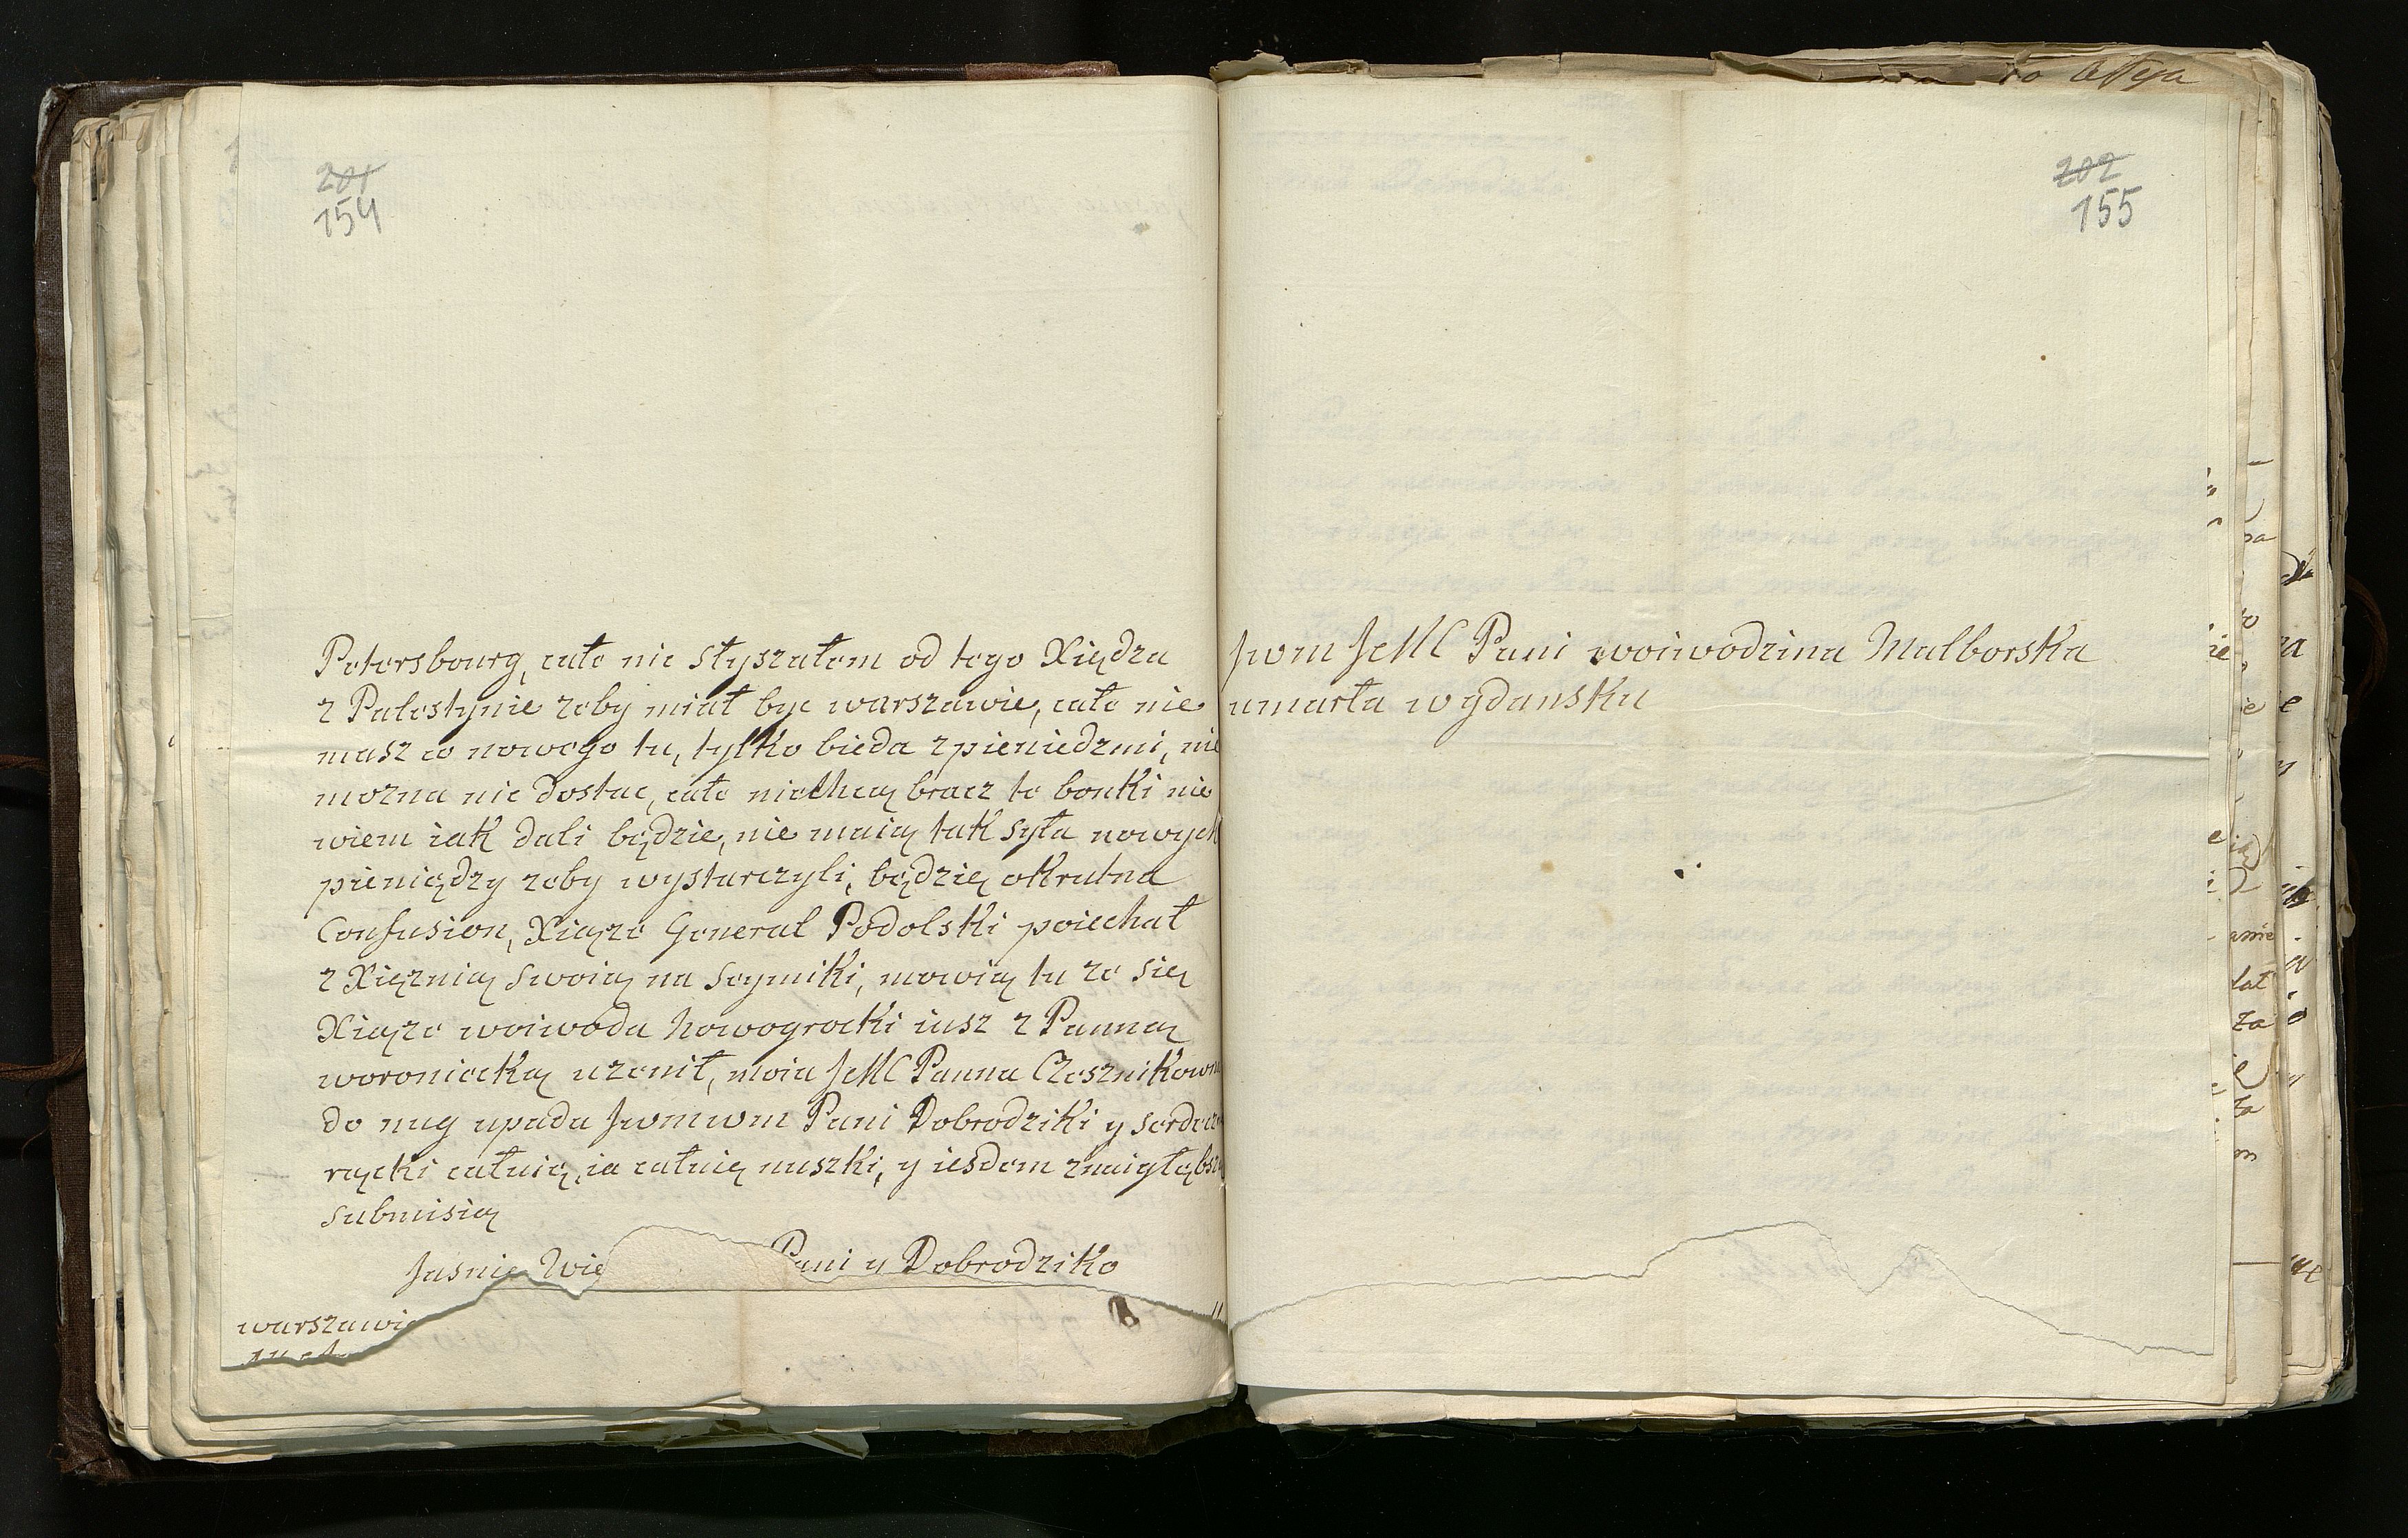 201
154
Petersbourg, cale nic słyszałem od tego Xiędza
z Palestynie zeby miał byc warszawie, cale nie
masz co nowego tu, tylko bieda zpieniedzmi, nie
mozna nic dostac, cale niechcą bracz te bonki nie
wiem iak dali będzie, nie maią tak syła nowych
pieniędzy zeby wystarczyli, będzię okrutna
Confusion, Xiąze General Podolski poiechał
z Xięznią swoią na seymiki, mowią tu ze się
Xiąze woiwoda Nowogrocki iusz z Panną
woroniecką uzenił, moia JeMC Panna Czesznikowna
do nug upada Jwmwm Pani Dobrodziki y
rącki całuię, ia całuię nuszki, y iesdem
submisią
Jasnie Wie Pani y Dobrodziko
warszawie
202
155
Jwm JeMC Pani woiwodzina Malborska
umarła wgdansku